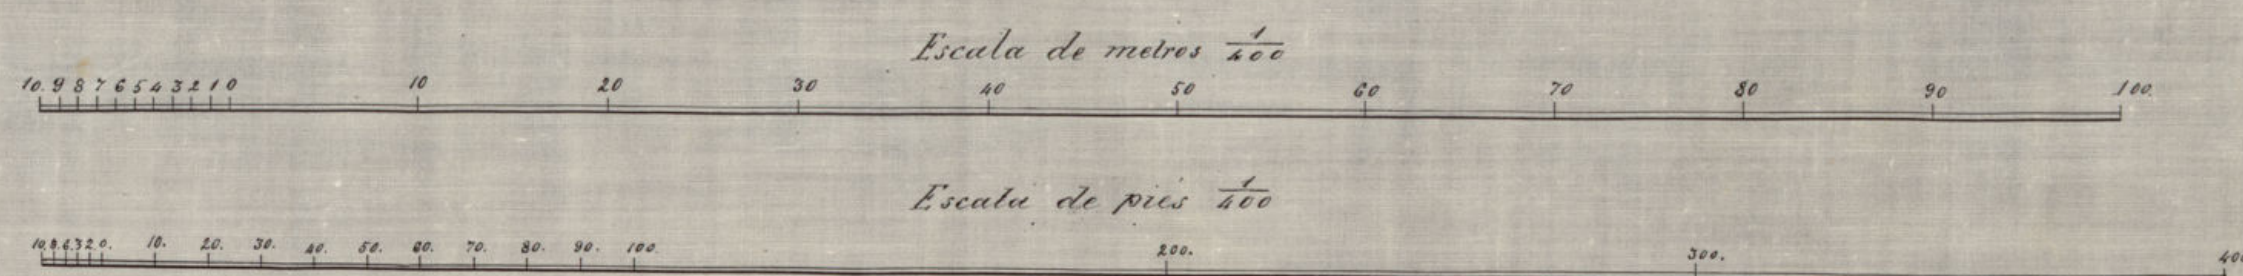 Escala de metros 1/400
10. 9 8 7 6 5 4 3 2 1 0 10 20 30 40 50 60 70 80 90 100.
Escala de pies 1/400
10. 8. 6. 3 2. 0. 10. 20. 30. 40. 50. 60. 70. 80. 90. 100. 200. 300.